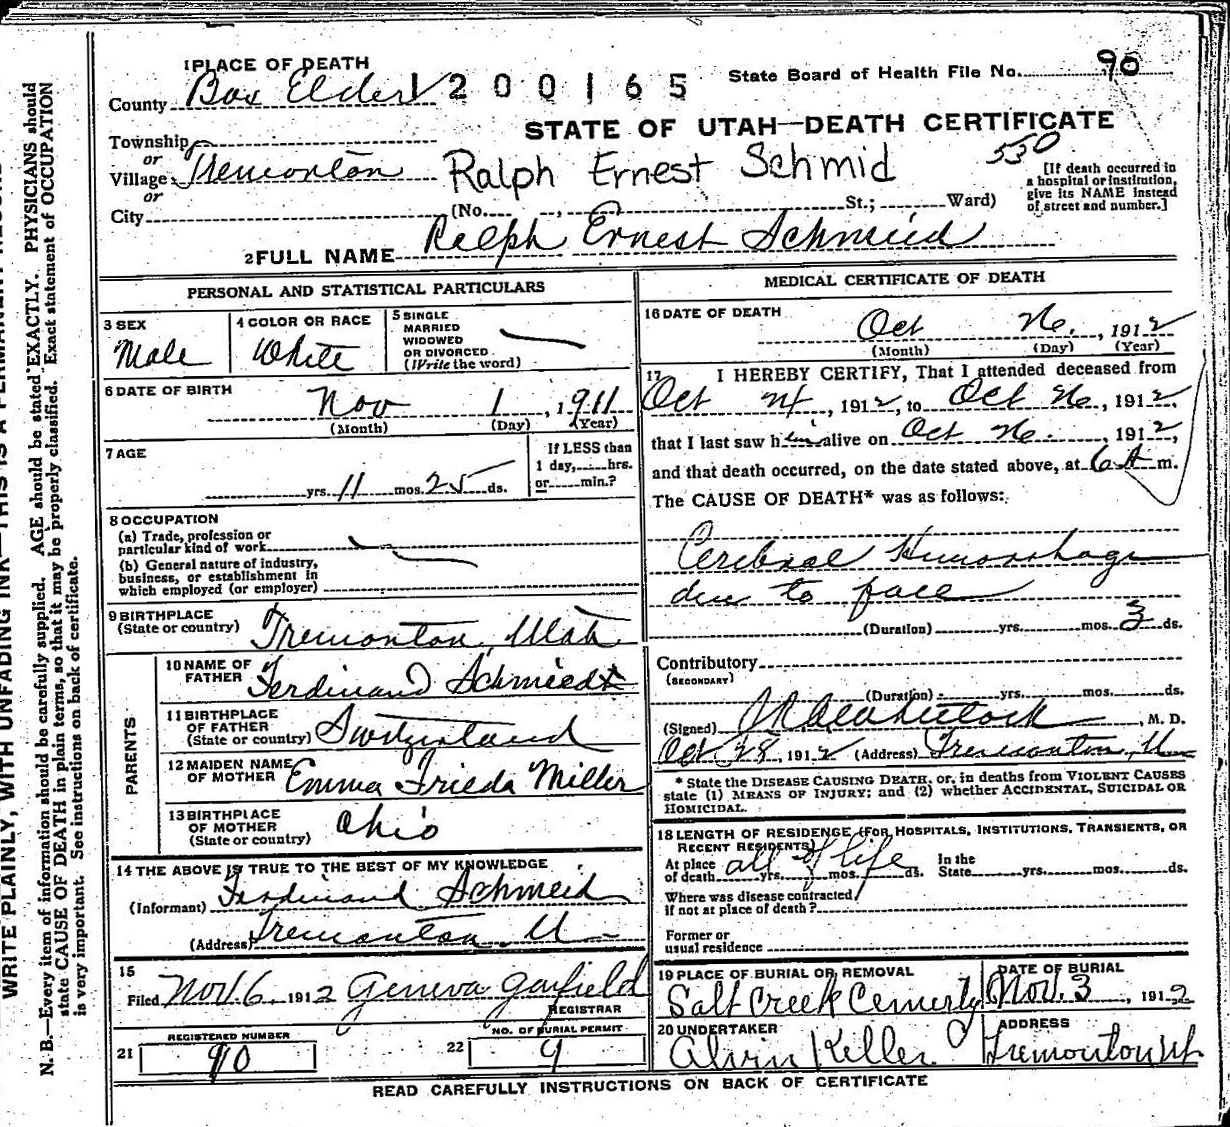 1 PLACE OF DEATH
County Box Elder
1200165
State Board of Health File No. 90
STATE OF UTAH—DEATH CERTIFICATE
Township
or
Village Tremonton
or
City
Ralph Ernest Schmid
530
[If death occurred in
a hospital or institution,
give its NAME instead
of street and number.]
(No. , St.; Ward)
2 FULL NAME Ralph Ernest Schmeid
PERSONAL AND STATISTICAL PARTICULARS
3 SEX
Male
4 COLOR OR RACE
White
5 SINGLE
MARRIED
WIDOWED
OR DIVORCED
(Write the word)
6 DATE OF BIRTH
Nov 1, 1911
(Month) (Day) (Year)
7 AGE
yrs. 11 mos. 25 ds.
If LESS than
1 day, hrs.
or min.?
8 OCCUPATION
(a) Trade, profession or
particular kind of work
(b) General nature of industry,
business, or establishment in
which employed (or employer)
9 BIRTHPLACE
(State or country) Tremonton, Utah
PARENTS
10 NAME OF
FATHER Ferdinand Schmiedt
11 BIRTHPLACE
OF FATHER
(State or country) Switzerland
12 MAIDEN NAME
OF MOTHER Emma Frieda Miller
13 BIRTHPLACE
OF MOTHER
(State or country) Ohio
14 THE ABOVE IS TRUE TO THE BEST OF MY KNOWLEDGE
(Informant) Ferdinand Schmeid
(Address) Tremonton, U
15
Filed Nov. 6, 1912 Geneva Garfield
REGISTRAR
REGISTERED NUMBER
21 90
NO. OF BURIAL PERMIT
22 9
MEDICAL CERTIFICATE OF DEATH
16 DATE OF DEATH
Oct 26, 1912
(Month) (Day) (Year)
17 I HEREBY CERTIFY, That I attended deceased from
Oct 24, 1912, to Oct 26, 1912,
that I last saw him alive on Oct 26, 1912,
and that death occurred, on the date stated above, at 6 A m.
The CAUSE OF DEATH* was as follows:
Cerebral Hemorrhage
due to fall
(Duration) yrs. mos. 3 ds.
Contributory
(SECONDARY)
(Duration) yrs. mos. ds.
(Signed) , M. D.
Oct 28, 1912 (Address) Tremonton, U
* State the DISEASE CAUSING DEATH, or, in deaths from VIOLENT CAUSES
state (1) MEANS OF INJURY; and (2) whether ACCIDENTAL, SUICIDAL OR
HOMICIDAL.
18 LENGTH OF RESIDENCE (FOR HOSPITALS, INSTITUTIONS, TRANSIENTS, OR
RECENT RESIDENTS)
At place
of death all of life yrs. mos. ds. In the
State yrs. mos. ds.
Where was disease contracted,
if not at place of death?
Former or
usual residence
19 PLACE OF BURIAL OR REMOVAL
Salt Creek Cemerty
DATE OF BURIAL
Nov. 3, 1912
20 UNDERTAKER
Alvin Keller
ADDRESS
Tremonton Ut
READ CAREFULLY INSTRUCTIONS ON BACK OF CERTIFICATE
WRITE PLAINLY, WITH UNFADING INK—THIS IS A PERMANENT RECORD
N. B.—Every item of information should be carefully supplied. AGE should be stated EXACTLY. PHYSICIANS should
state CAUSE OF DEATH in plain terms, so that it may be properly classified. Exact statement of OCCUPATION
is very important. See instructions on back of certificate.